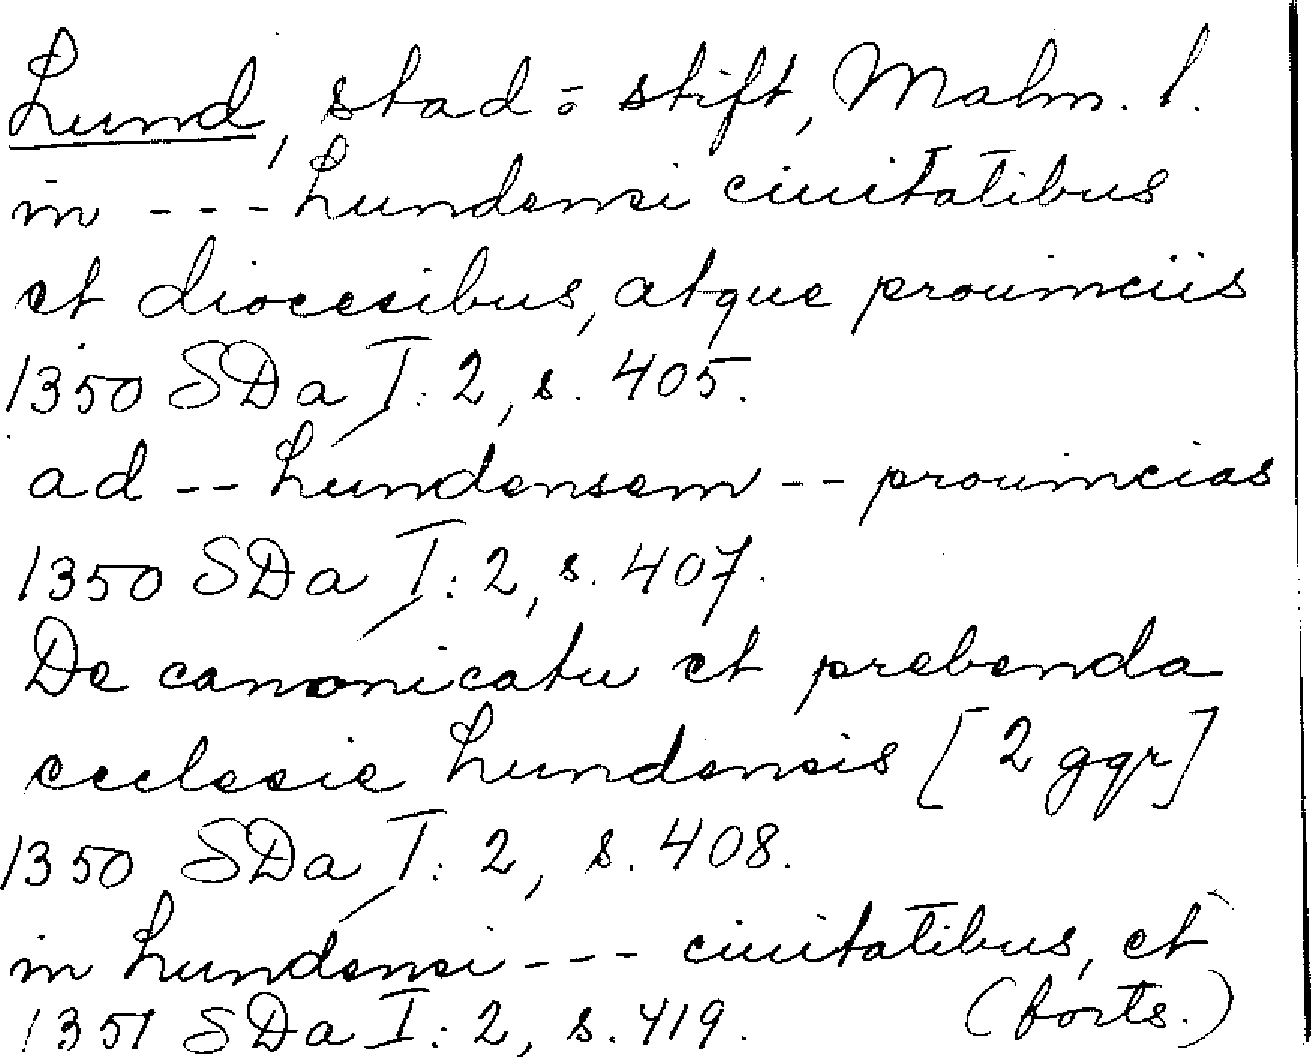 Lund, stad o stift, Malm. l.
in --- Lundensi ciuitatibus
et diocesibus, atque prouinciis
1350 SDa I: 2, s. 405.
ad -- Lundensem -- prouincias
1350 SDa I: 2, s. 407.
De canonicatu et prebenda
ecclesie Lundensis [2 ggr]
1350 SDa I: 2, s. 408.
in Lundensi --- ciuitatibus, et
1351 SDa I: 2, s. 419. (forts.)